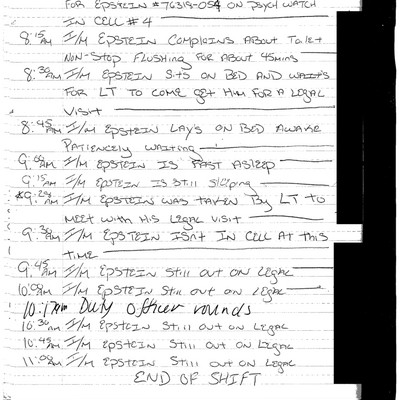 FOR EPSTEIN #76318-054 ON PSYCH WATCH
IN CELL #4
8:15AM I/M EPSTEIN COMPLAINS ABOUT TOILET
NON-STOP FLUSHING FOR ABOUT 45MINS
8:30AM I/M EPSTEIN SITS ON BED AND WAITS
FOR LT TO COME GET HIM FOR A LEGAL
VISIT
8:45AM I/M EPSTEIN LAYS ON BED AWAKE
PATIENCELY WAITING
9:00AM I/M EPSTEIN IS FAST ASLEEP
9:15AM I/M EPSTEIN IS STILL SLEEPING
*9:20AM I/M EPSTEIN WAS TAKEN BY LT TO
MEET WITH HIS LEGAL VISIT
9:30AM I/M EPSTEIN ISN'T IN CELL AT THIS
TIME
9:45AM I/M EPSTEIN STILL OUT ON LEGAL
10:00AM I/M EPSTEIN STILL OUT ON LEGAL
10:17AM Duty officer rounds
10:30AM I/M EPSTEIN STILL OUT ON LEGAL
10:45AM I/M EPSTEIN STILL OUT ON LEGAL
11:00AM I/M EPSTEIN STILL OUT ON LEGAL
END OF SHIFT